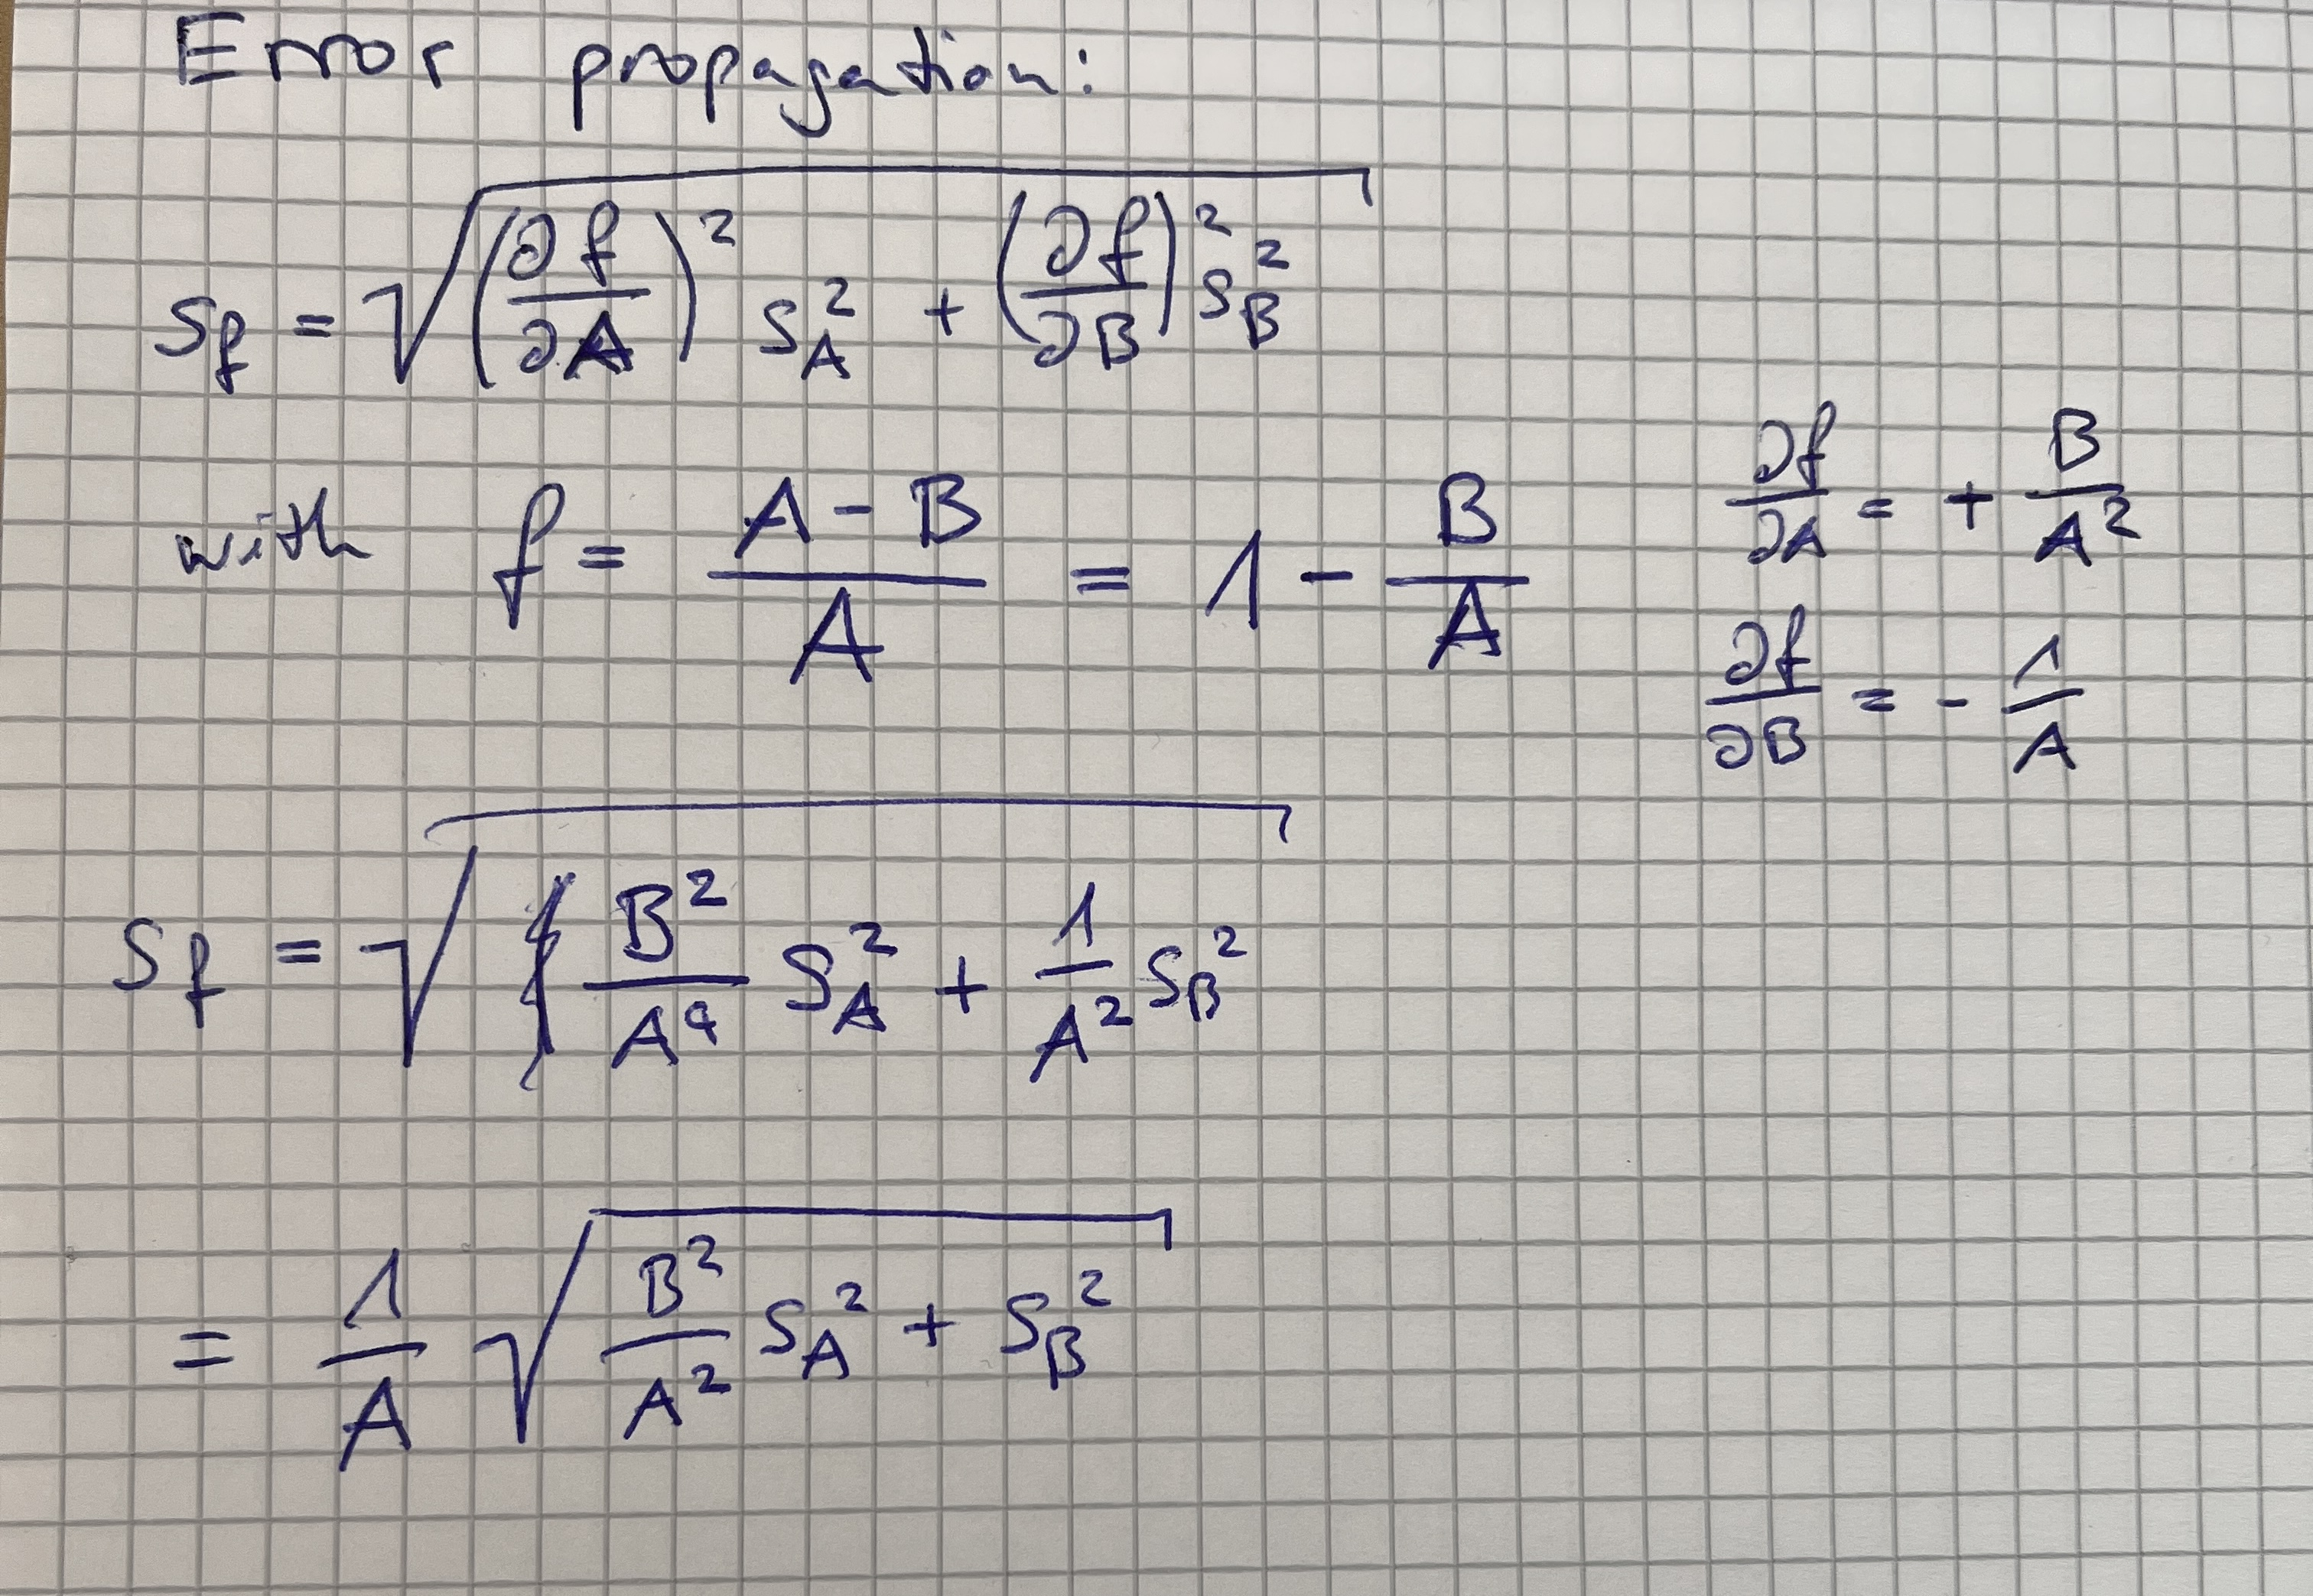 Error propagation:
s_f = √((∂f/∂A)² s_A² + (∂f/∂B)² s_B²)
with f = (A - B)/A = 1 - B/A
∂f/∂A = + B/A²
∂f/∂B = - 1/A
s_f = √(B²/A⁴ s_A² + 1/A² s_B²)
= 1/A √(B²/A² s_A² + s_B²)